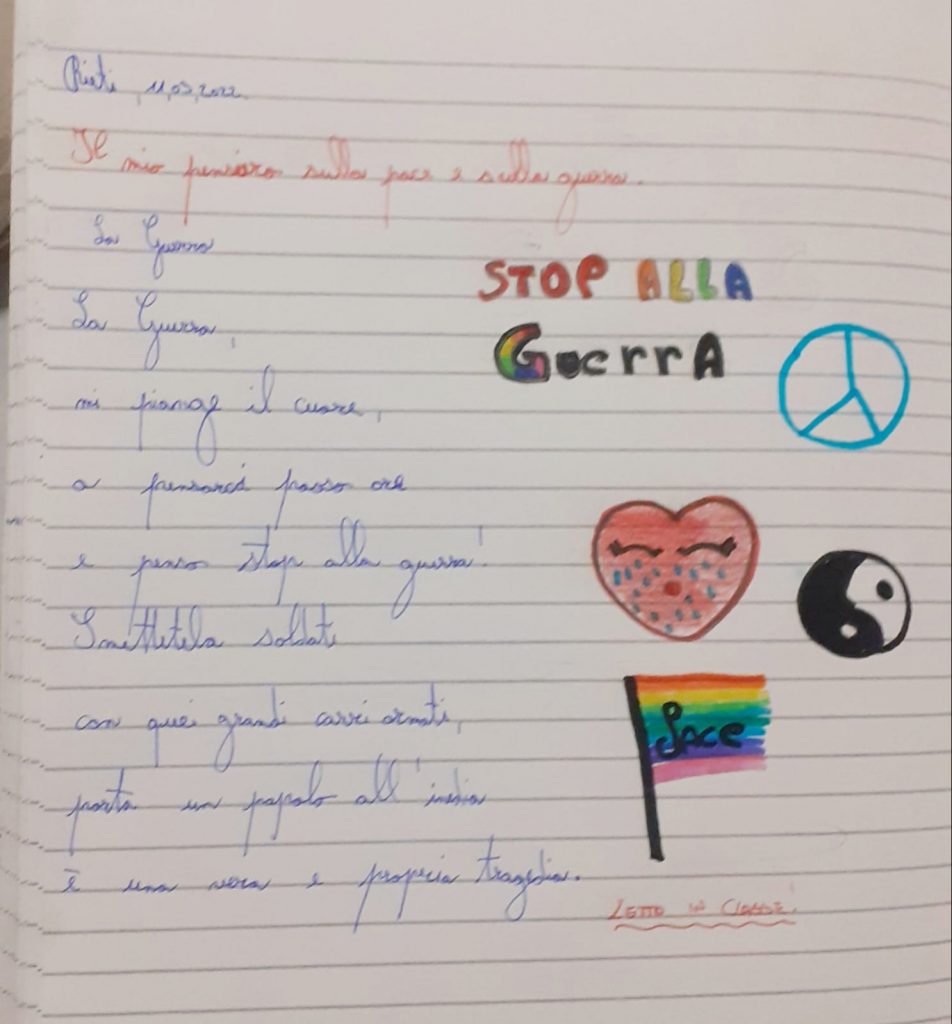 Rieti, 11,03,2022.
Il mio pensiero sulla pace e sulla guerra.
La Guerra
La Guerra,
mi piange il cuore,
a pensarci passo ore
e penso stop alla guerra!
Smettetela soldati
con quei grandi carri armati,
porta un popolo all'inedia
è una vera e propria tragedia.
STOP ALLA
GuerrA
Pace
LETTO IN CLASSE!